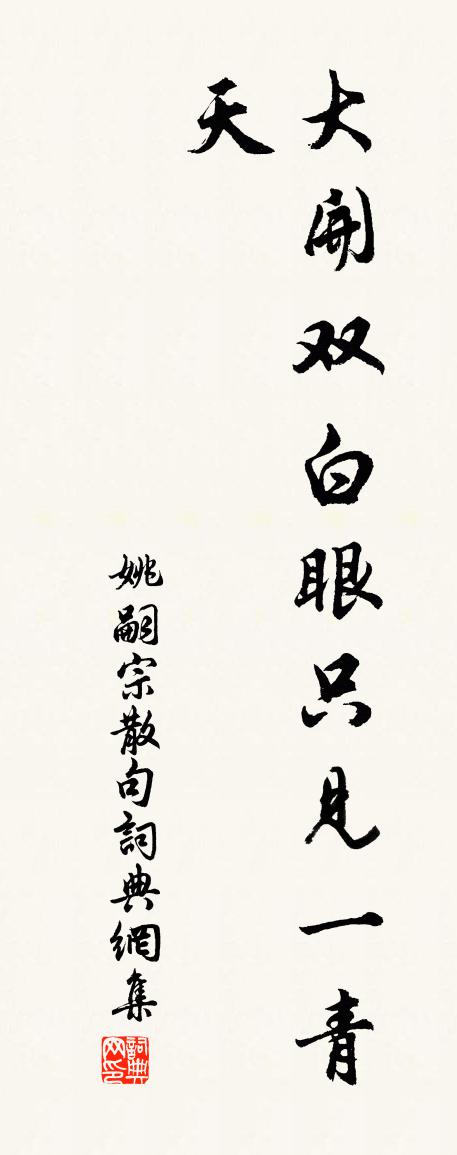 大開双白眼只見一青
天
姚嗣宗散句詞典網集
詞典
网印